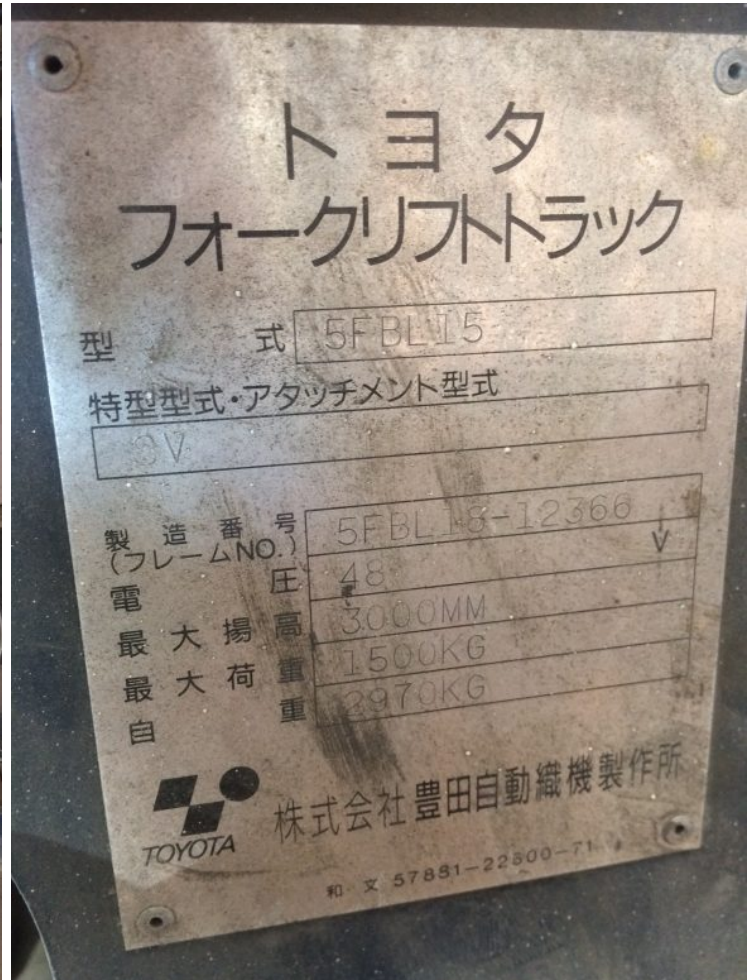 トヨタ
フォークリフトトラック
型式 5FBL15
特型型式・アタッチメント型式
3V
製造番号 5FBL18-12366
(フレームNO.)
電圧 48 V
最大揚高 3000MM
最大荷重 1500KG
自重 2970KG
TOYOTA 株式会社 豊田自動織機製作所
和文 57881-22800-71